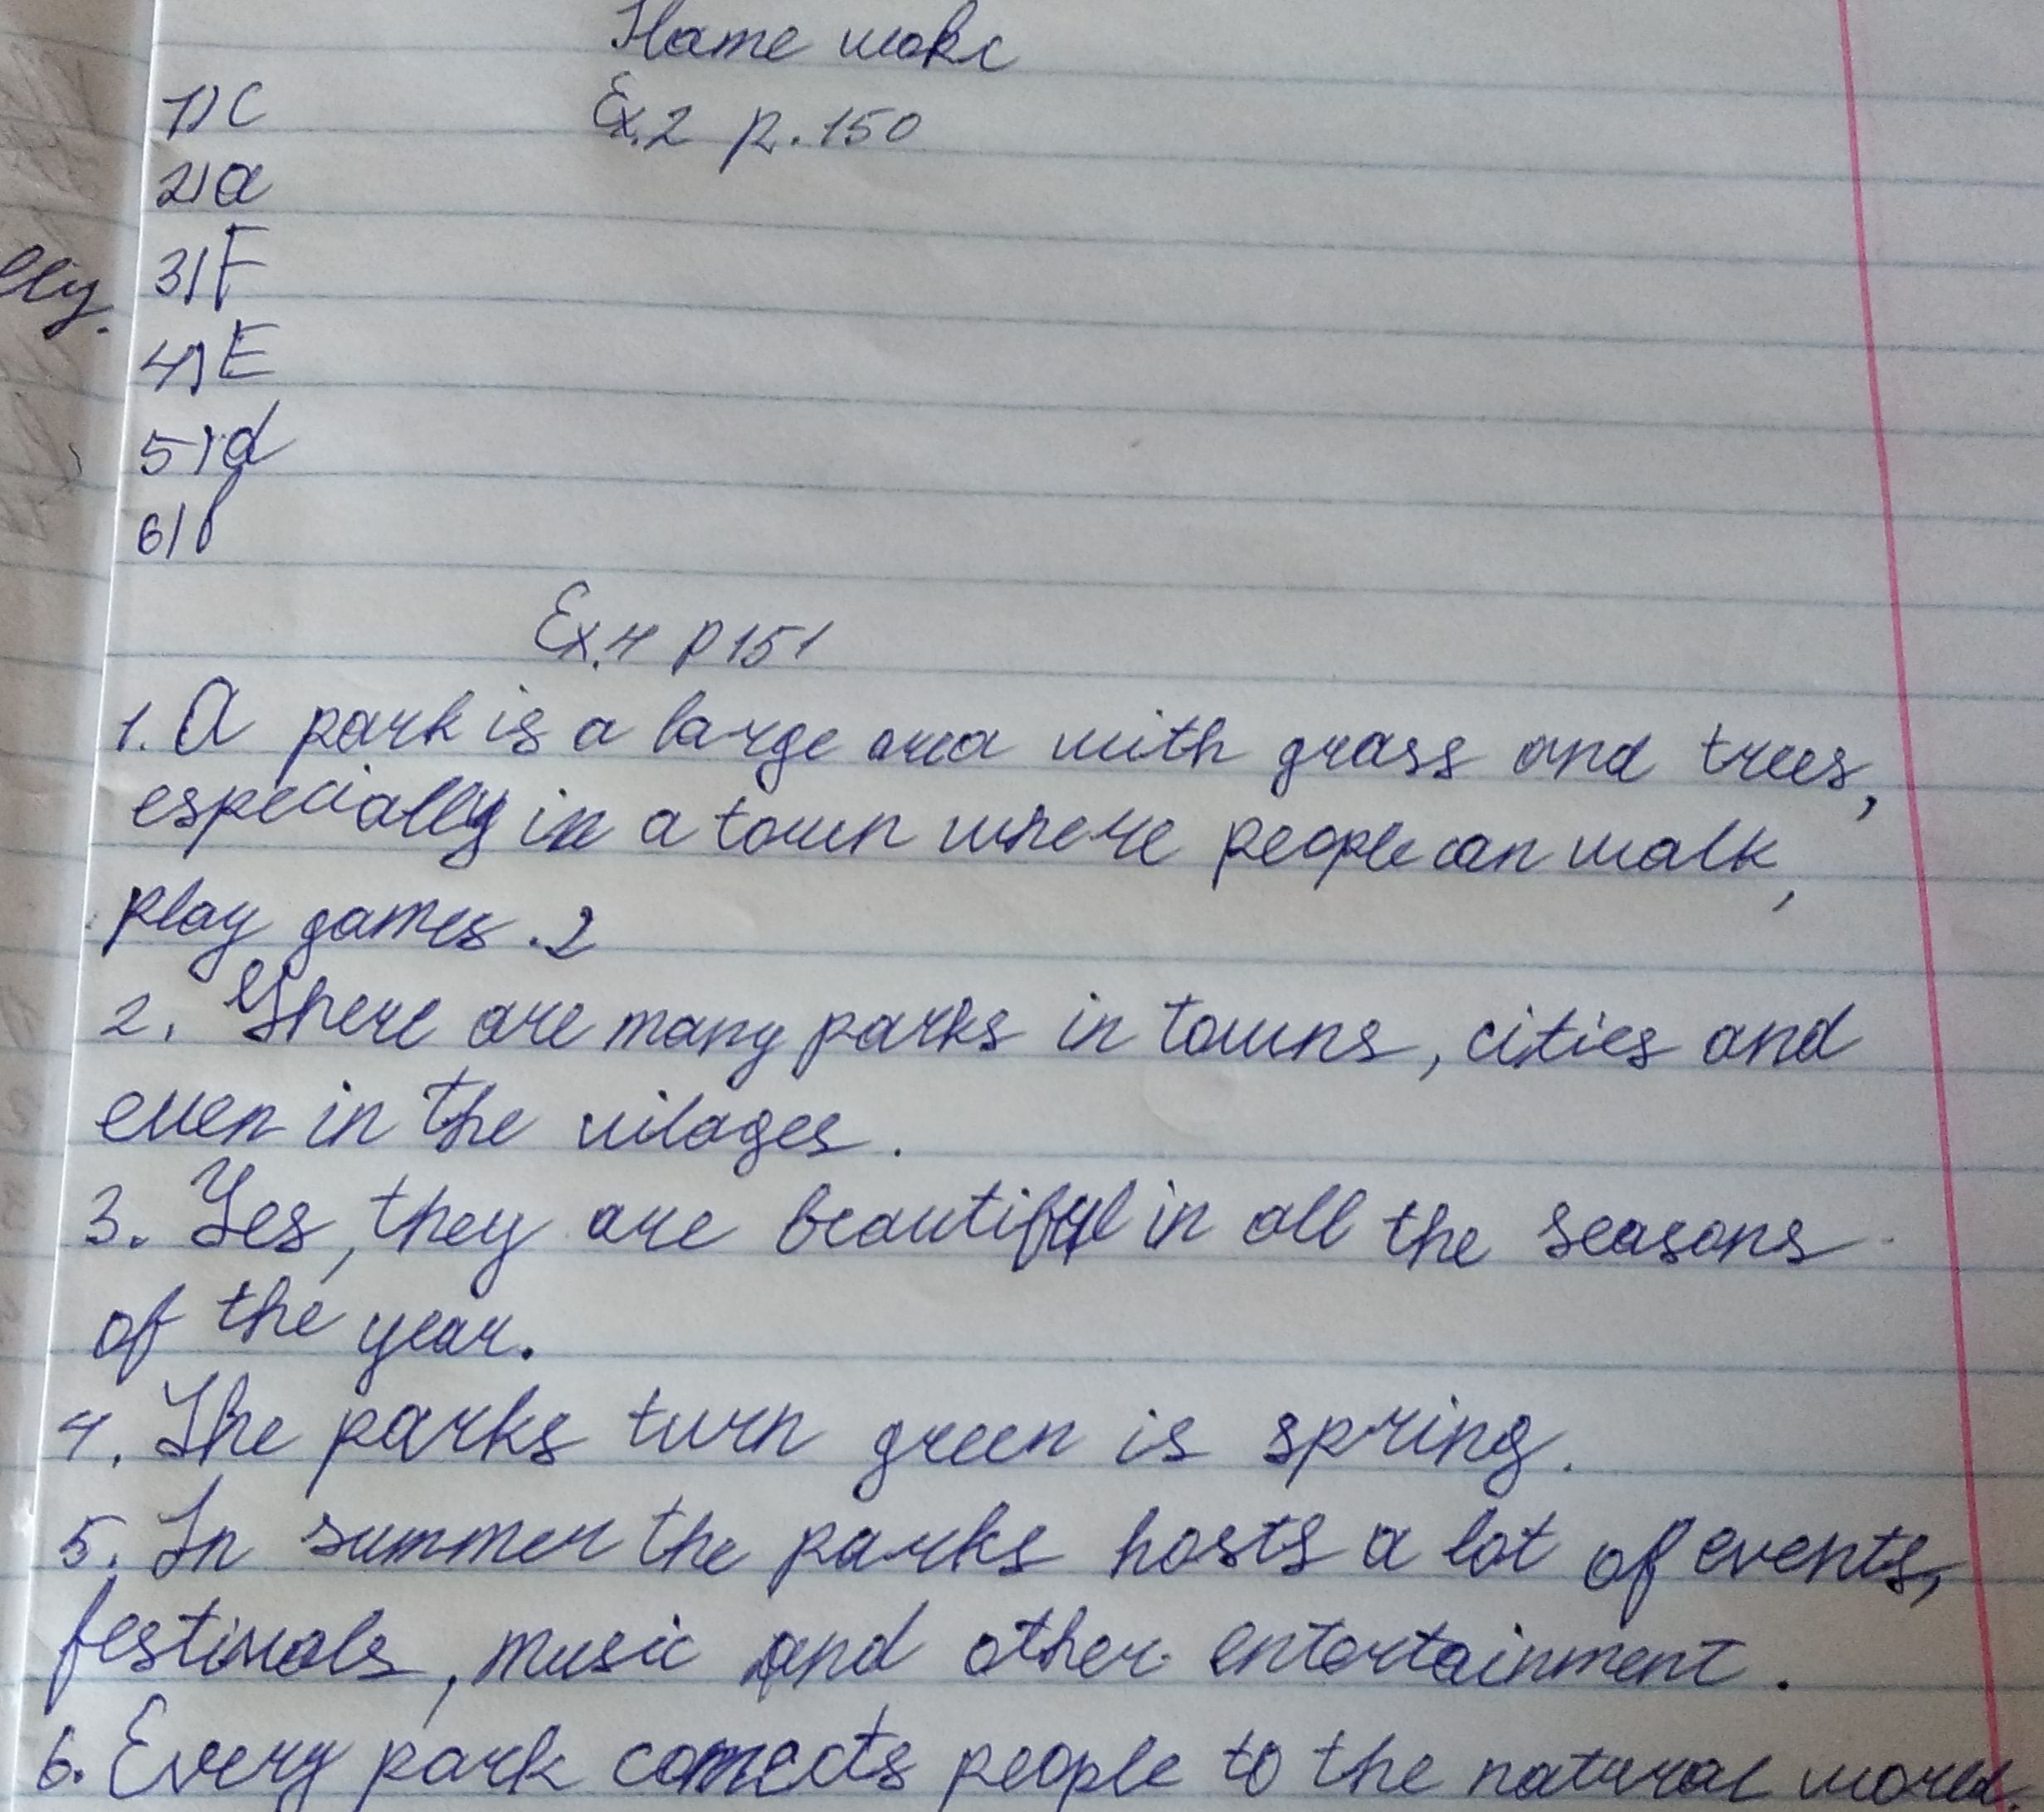 Home work
Ex.2 p.150
1) c
2) a
3) F
4) E
5) d
6) b
lly.
Ex.4 p 151
1. A park is a large area with grass and trees,
especially in a town where people can walk,
play games. 2
2. There are many parks in towns, cities and
even in the vilages.
3. Yes, they are beautiful in all the seasons
of the year.
4. The parks turn green is spring.
5. In summer the parks hosts a lot of events,
festivals, music and other entertainment.
6. Every park connects people to the natural world.